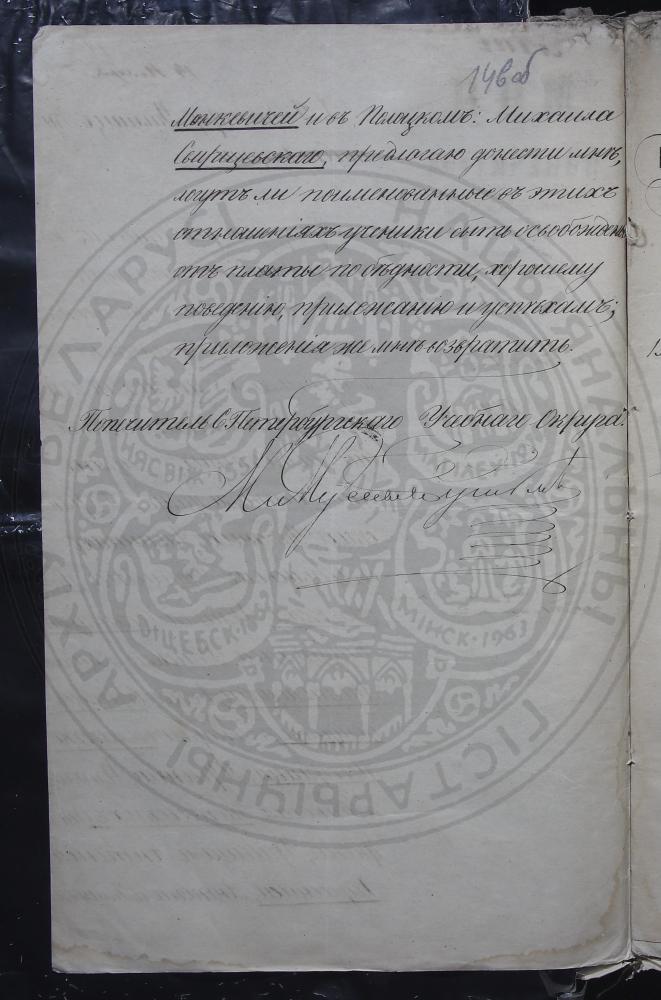 148 об
Монкевичей и въ Полоцкомъ: Михаила
Свирщевскаго, предлагаю донести мнѣ,
могутъ ли поименованные въ этихъ
отношеніяхъ ученики быть освобождены
отъ платы по бѣдности, хорошему
поведенію, прилежанію и успѣхамъ;
приложенія же мнѣ возвратить.
Попечитель С. Петербургскаго Учебнаго Округа
НАЦЫЯНАЛЬНЫ ГІСТАРЫЧНЫ АРХІЎ БЕЛАРУСІ
ВІЦЕБСК
МІНСК · 1963